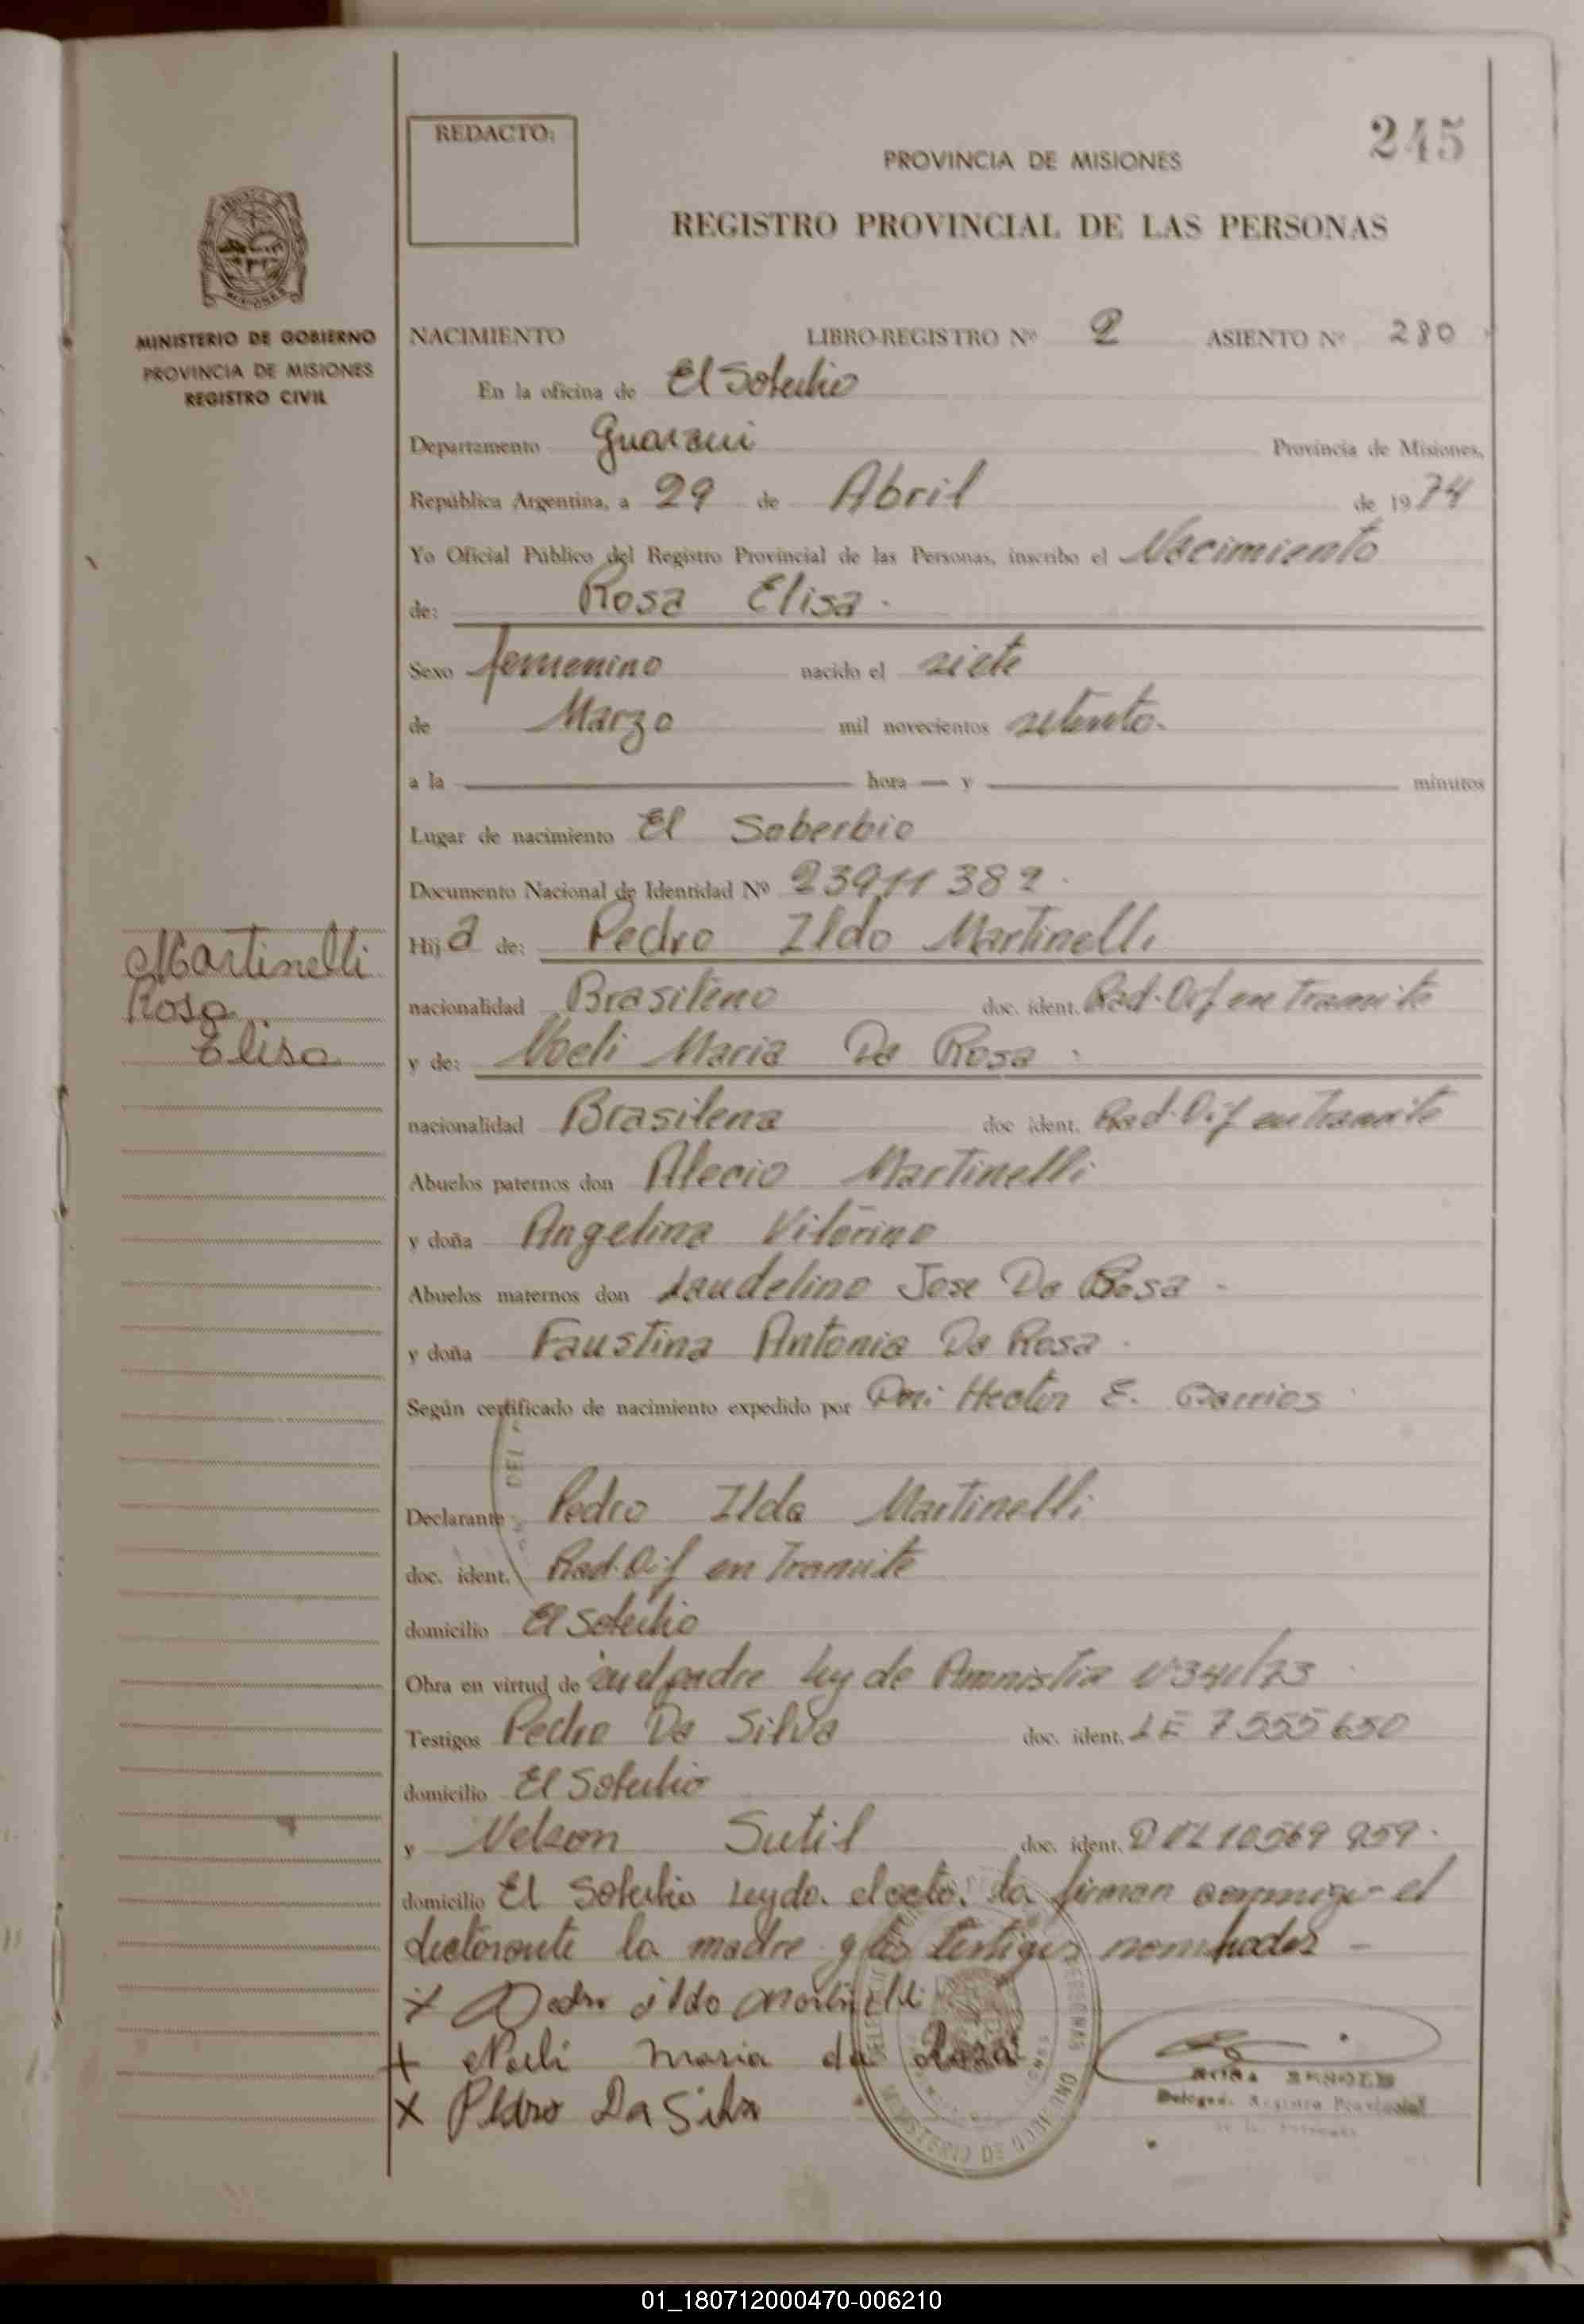 245
REDACTO:
PROVINCIA DE MISIONES
REGISTRO PROVINCIAL DE LAS PERSONAS
MISIONES
MINISTERIO DE GOBIERNO
PROVINCIA DE MISIONES
REGISTRO CIVIL
NACIMIENTO LIBRO-REGISTRO Nº 2 ASIENTO Nº 280
En la oficina de El Soberbio
Departamento Guarani Provincia de Misiones,
República Argentina, a 29 de Abril de 1974
Yo Oficial Público del Registro Provincial de las Personas, inscribo el Nacimiento
de: Rosa Elisa.
Sexo femenino nacido el siete
de Marzo mil novecientos setenta.
a la hora y minutos
Lugar de nacimiento El Soberbio
Documento Nacional de Identidad Nº 23911382
Hija de: Pedro Ildo Martinelli
Martinelli
Rosa
Elisa
nacionalidad Brasileno doc. ident. Rad. Dif en Tramite
y de: Noeli Maria Da Rosa
nacionalidad Brasilena doc ident. Rad. Dif en Tramite
Abuelos paternos don Alecio Martinelli
y doña Angelina Vitorino
Abuelos maternos don Laudelino Jose Da Rosa -
y doña Faustina Antonia Da Rosa.
Según certificado de nacimiento expedido por Hector E. Barrios
DEL
Declarante Pedro Ildo Martinelli
doc. ident. Rad. Dif en Tramite
domicilio El Soberbio
Obra en virtud de ser el padre Ley de Amnistia
Testigos Pedro Da Silva doc. ident. LE 7555650
domicilio El Soberbio
y Nelson Sutil doc. ident. DNI 10569959.
domicilio El Soberbio Leyda. el acta. la firman conmigo el
declarante la madre y los testigos nombrados -
x Pedro ildo Martinelli
+ Noeli Maria da Rosa
x Pedro Da Silva
Delegad. Registro Provincial
de las Personas
01_180712000470-006210